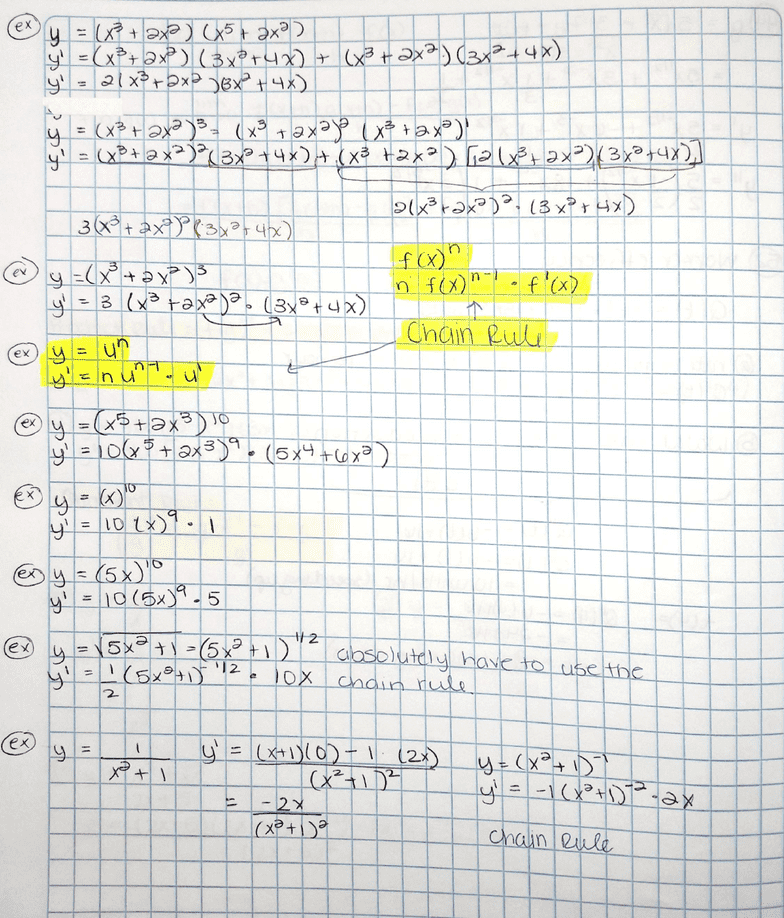 ex y = (x³ + 2x²) (x⁵ + 2x²)
y' = (x³ + 2x²) (3x² + 4x) + (x³ + 2x²) (3x² + 4x)
y' = 2(x³ + 2x²)(3x² + 4x)
y = (x³ + 2x²)³ = (x³ + 2x²)² (x³ + 2x²)'
y' = (x³ + 2x²)² (3x² + 4x) + (x³ + 2x²) [2(x³ + 2x²)(3x² + 4x)]
2(x³ + 2x²)² · (3x² + 4x)
3(x³ + 2x²)² (3x² + 4x)
f(x)ⁿ
ex y = (x³ + 2x²)³
n f(x)ⁿ⁻¹ · f'(x)
y' = 3 (x³ + 2x²)² · (3x² + 4x)
Chain Rule
ex y = uⁿ
y' = n uⁿ⁻¹ · u'
ex y = (x⁵ + 2x³)¹⁰
y' = 10(x⁵ + 2x³)⁹ · (5x⁴ + 6x²)
ex y = (x)¹⁰
y' = 10 (x)⁹ · 1
ex y = (5x)¹⁰
y' = 10(5x)⁹ · 5
ex y = √5x² + 1 = (5x² + 1)^1/2 absolutely have to use the
y' = 1/2 (5x² + 1)^-1/2 · 10x chain rule.
ex y = 1/(x² + 1) y' = ((x+1)(0) - 1 · (2x))/(x² + 1)² y = (x² + 1)⁻¹
y' = -1(x² + 1)⁻² · 2x
= -2x/(x² + 1)²
chain Rule